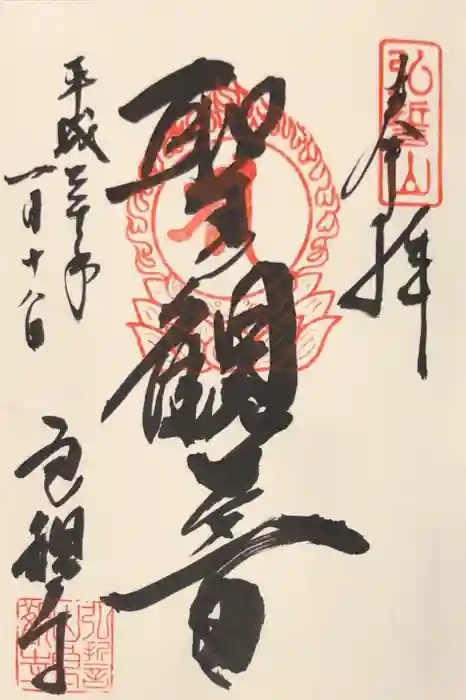 弘誓山
奉拝
聖観音
平成三十年
一月十八日